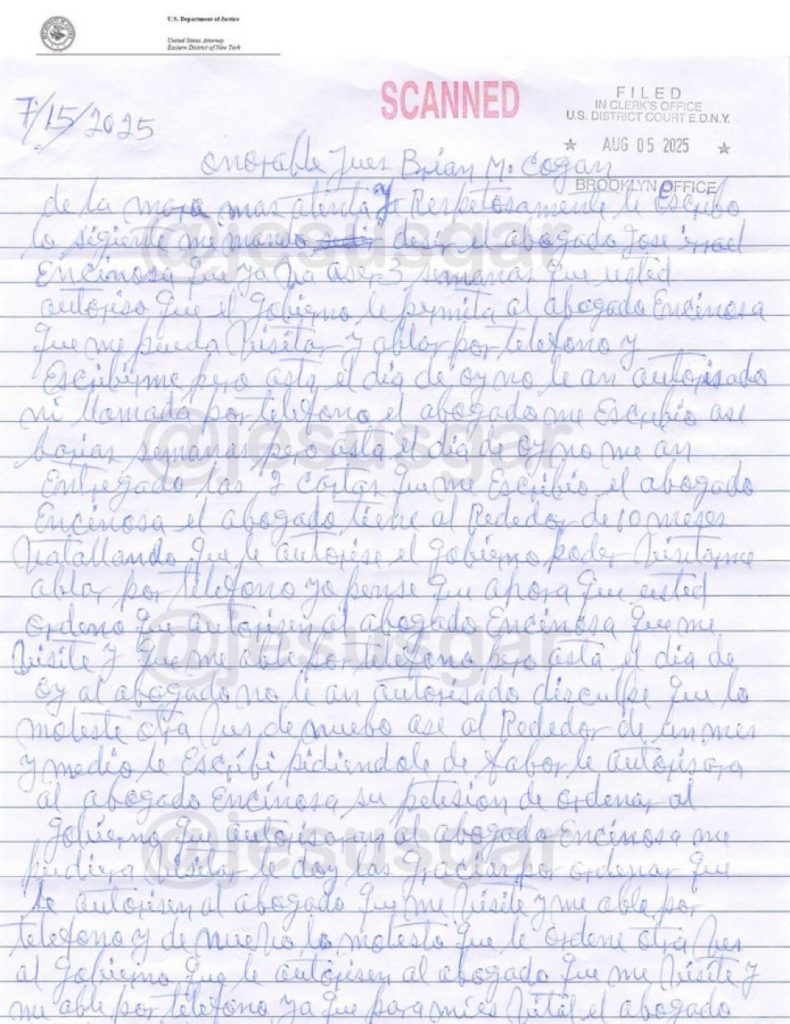 U.S. Department of Justice
United States Attorney
Eastern District of New York
7/15/2025
SCANNED
FILED
IN CLERK'S OFFICE
U.S. DISTRICT COURT E.D.N.Y.
★ AUG 05 2025 ★
BROOKLYN OFFICE
onorable Jues Brian M. Cogan
de la mara mas atenta y Respetosamente le Escribo
lo sigiente mi mando desir el abogado Jose
Encinosa que ya ba aser 3 semanas que usted
autoriso que el gobierno le permita al abogado Encinosa
que me pueda Visitar y ablar por telefono y
Escribirme pero asta el dia de oy no le an autorisado
ni llamada por telefono el abogado me Escribio ase
barias semanas pero asta el dia de oy no me an
Entregado las 2 cartas que me Escribio el abogado
Encinosa el abogado tiene al Rededor de 10 meses
Vatallando que le autorise el gobierno poder Visitarme
ablar por telefono yo pense que ahora que usted
ordeno que autorisen al abogado Encinosa que me
Visite y que me able por telefono pero asta el dia de
oy al abogado no le an autorisado disculpe que lo
moleste otra Ves de nuebo ase al Rededor de un mes
y medio le Escribi pidiendole de fabor le autorisara
al abogado Encinosa su petesion de ordenar al
gobierno que autorisaran al abogado Encinosa me
pudiera Visitar le doy las gracias por ordenar que
le autorisen al abogado que me Visite y me able por
telefono y de nuebo lo molesto que le ordene otra Ves
al gobierno que le autorisen al abogado que me Visite y
me able por telefono ya que para mi es Vital el abogado
@jesusgar
@jesusgar
@jesusgar
@jesusgar